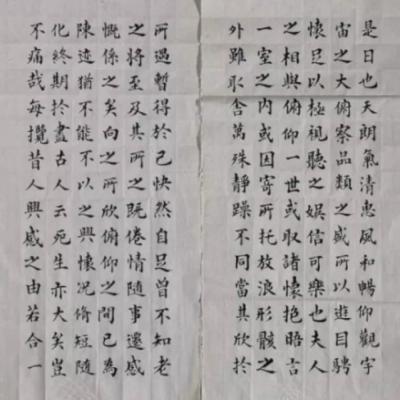 是日也天朗氣清惠風和暢仰觀宇
宙之大俯察品類之盛所以遊目騁
懷足以極視聽之娛信可樂也夫人
之相與俯仰一世或取諸懷抱晤言
一室之內或因寄所托放浪形骸之
外雖取舍萬殊靜躁不同當其欣於
所遇暫得於己快然自足曾不知老
之將至及其所之既倦情隨事遷感
慨係之矣向之所欣俯仰之間已為
陳迹猶不能不以之興懷況脩短隨
化終期於盡古人云死生亦大矣豈
不痛哉每攬昔人興感之由若合一